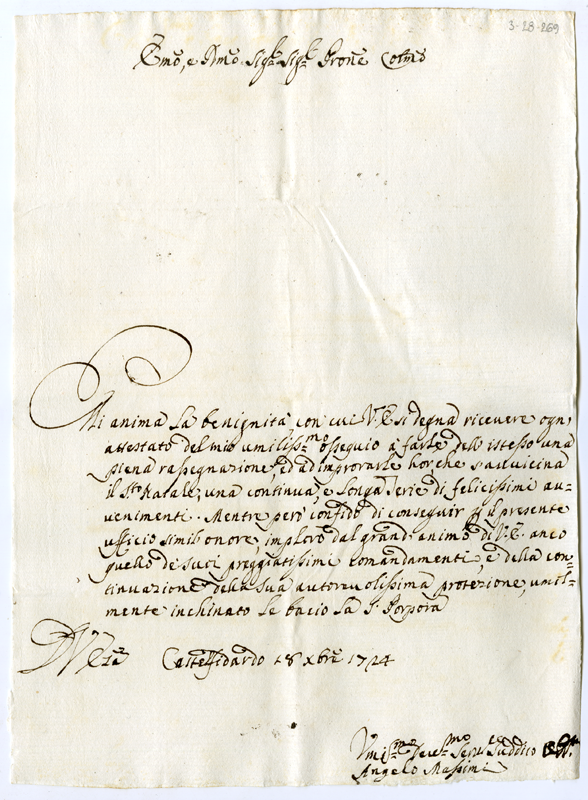 3-28-269
Emo, e Rmo Sigr Sigr Prone Colmo
Mi anima la benignità con cui V.E. si degna ricevere ogni
attestato del mio umilissmo ossequio à farle dell'istesso una
piena rassegnazione, ed ad improrarle hor che s'avvicina
il Sto Natale, una continua, e longa serie di felicissimi au-
venimenti. Mentre però confido di conseguir p il presente
ufficio simil'onore, imploro dal grand'animo di V.E. anco
quello de suoi preggiatissimi comandamenti, e della con-
tinuazione della sua autorevolissima protezione, umil-
mente inchinato le bacio la S. Porpora
D V Eza Castelfidardo 18 xbre 1724
Umilmo Devmo Servre Suddito
Angelo Massimi